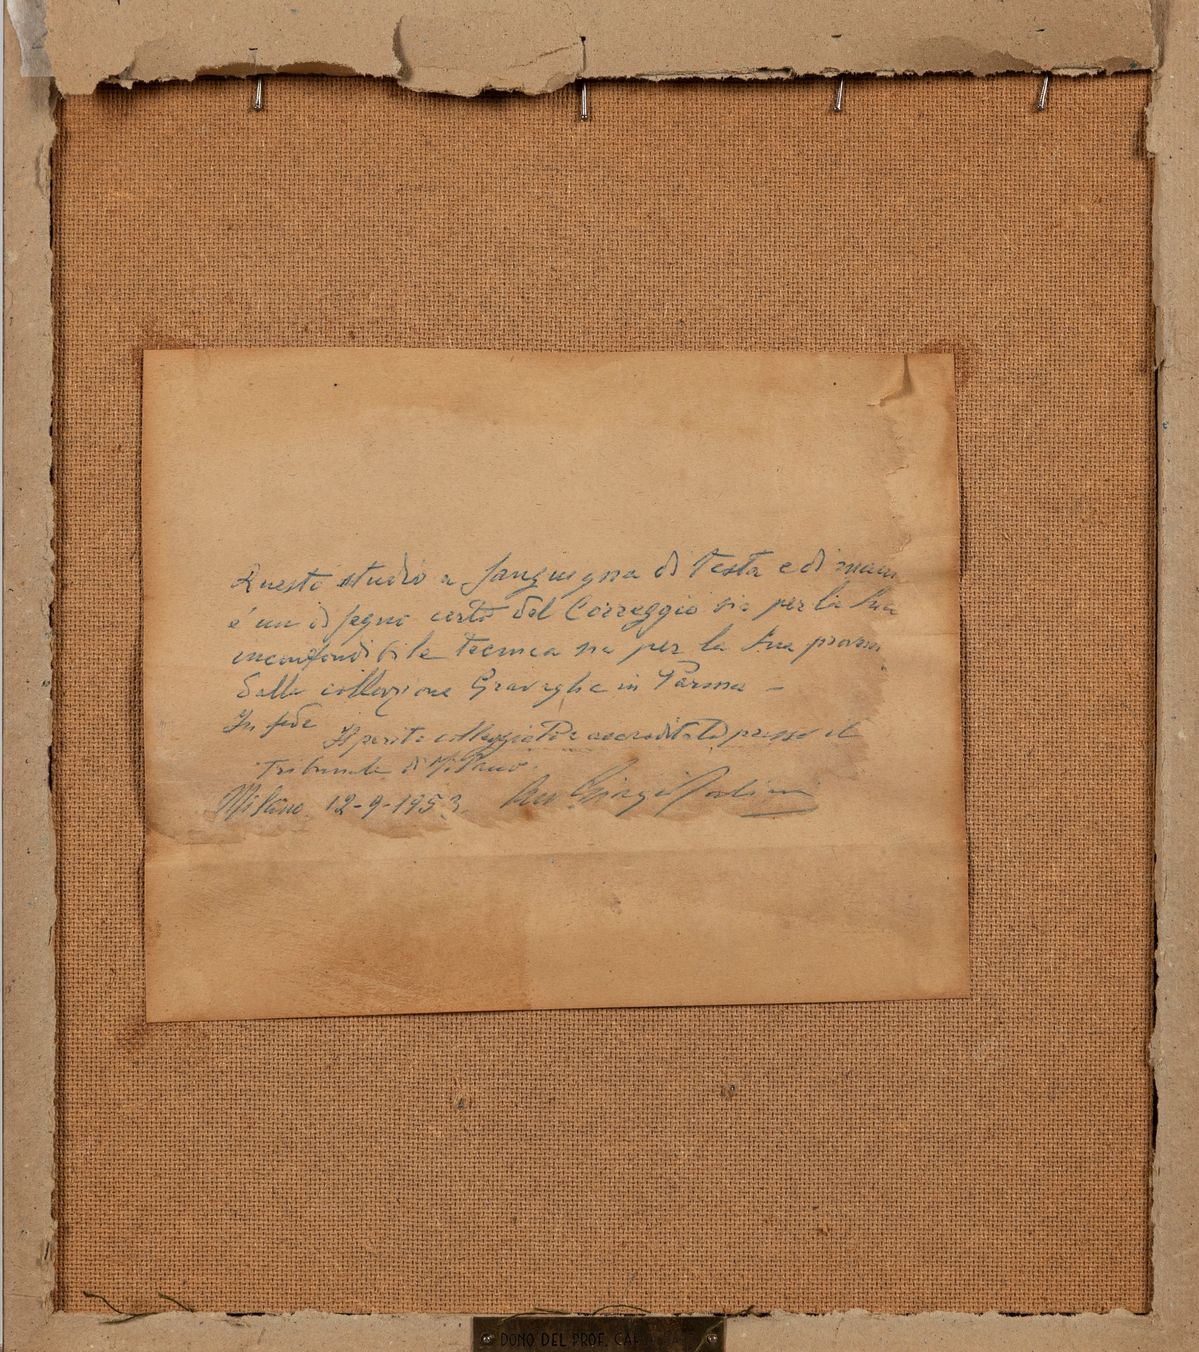 Questo studio a sanguigna di testa e di mani
é un disegno certo del Correggio sia per la sua
inconfondibile tecnica sia per la sua proven
dalla collezione Gravaghe in Parma -
In fede
Il perito colleggiato e accreditato presso il
Tribunale di Milano.
Milano 12-9-1953
DONO DEL PROF.